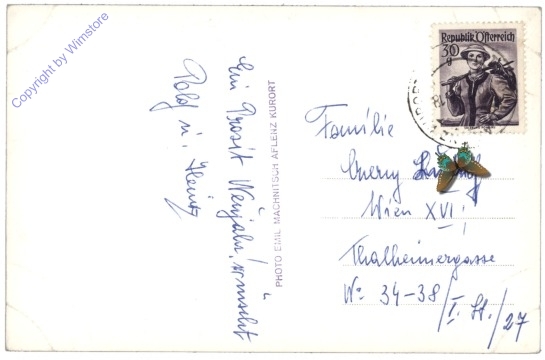 Copyright by Wimstore
Republik Österreich
30
g
Ein Prosit Neujahr! wünscht
Pold u. Heinz
PHOTO EMIL MACHNITSCH AFLENZ KURORT
Familie
Wien XVI,
Thalheimergasse
No 34-38/I. St./27